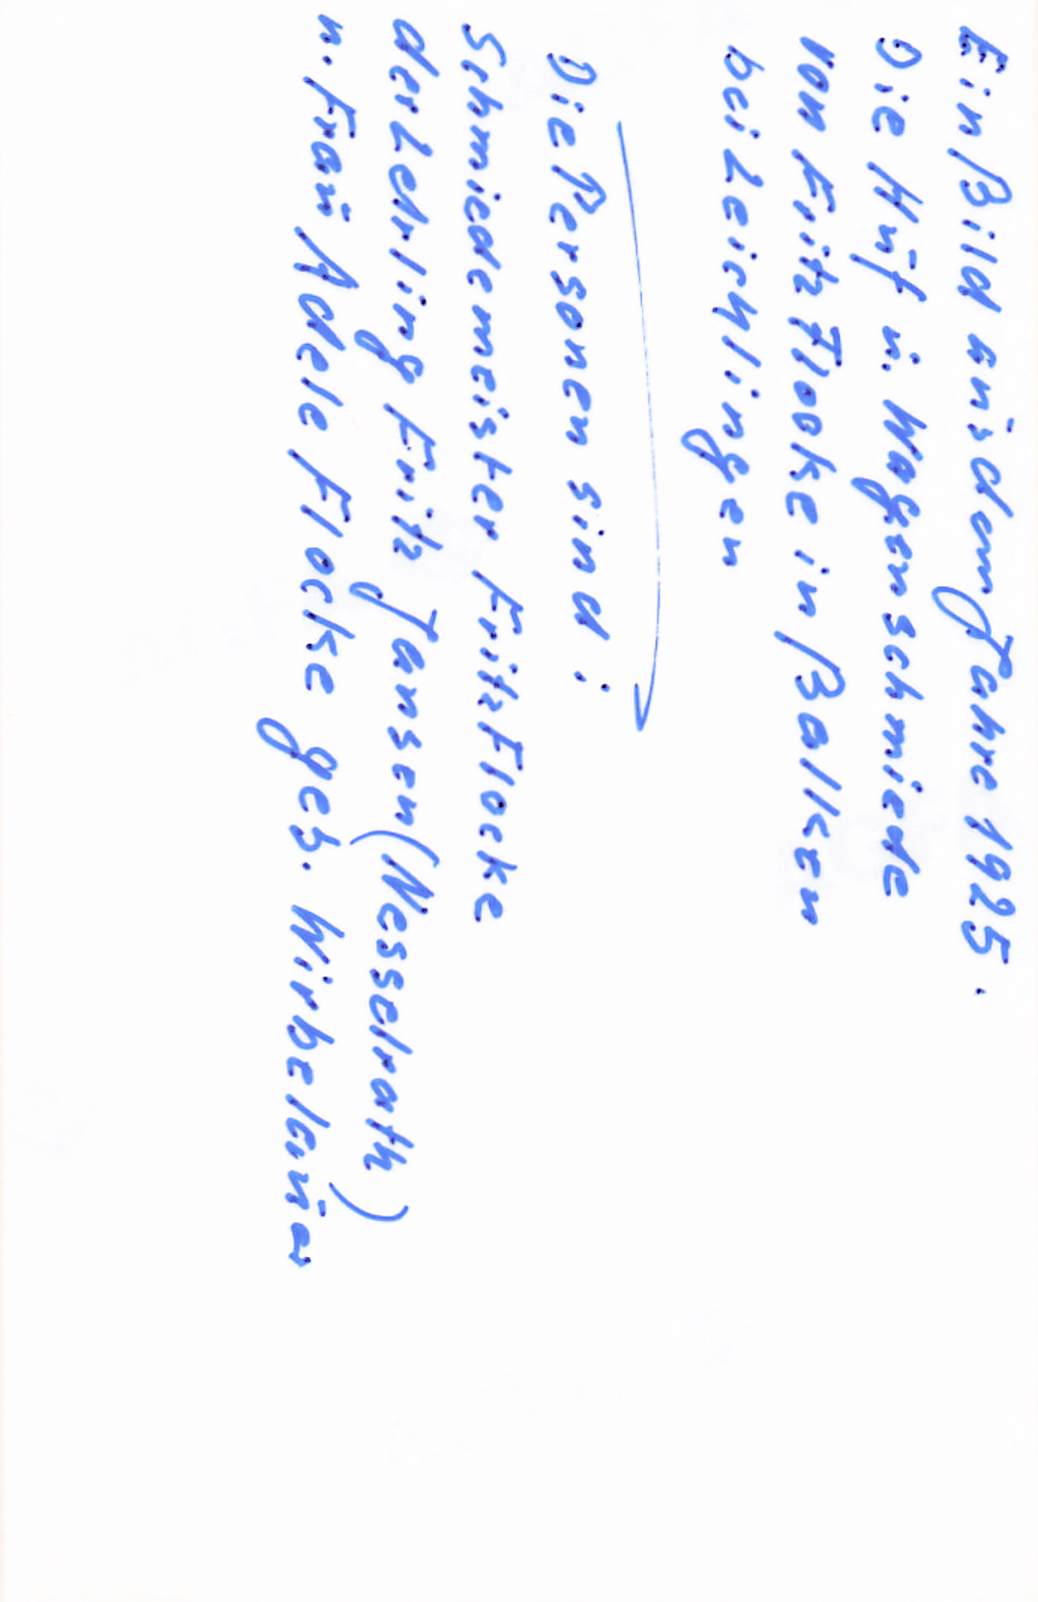 Ein Bild aus dem Jahre 1925.
Die Huf u. Wagenschmiede
von Fritz Flocke in Balken
bei Leichlingen
Die Personen sind:
Schmiedemeister Fritz Flocke
der Lehrling Fritz Jansen (Nesselrath)
u. Frau Adele Flocke geb. Wirbelauer